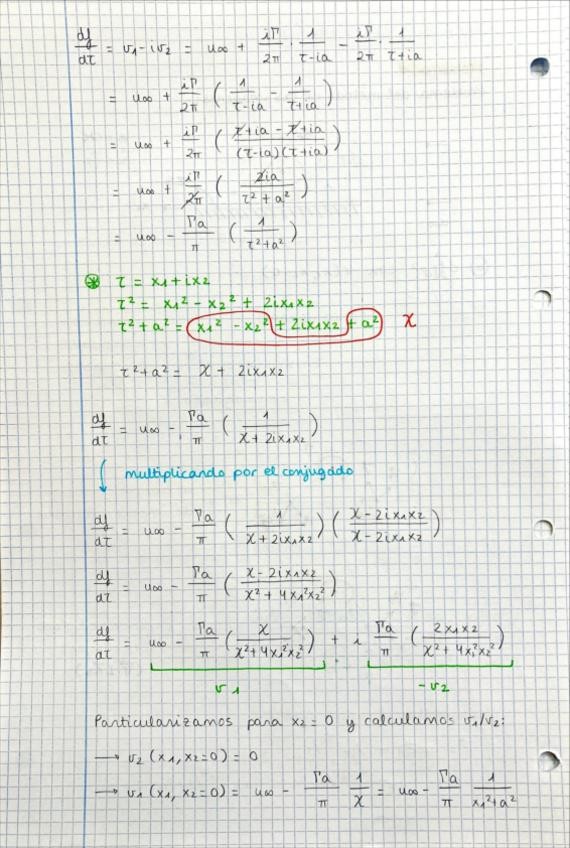 df/dτ = v₁ - iv₂ = u∞ + iΓ/2π · 1/(τ-ia) - iΓ/2π · 1/(τ+ia)
= u∞ + iΓ/2π ( 1/(τ-ia) - 1/(τ+ia) )
= u∞ + iΓ/2π ( (τ+ia - τ+ia)/((τ-ia)(τ+ia)) )
= u∞ + iΓ/2π ( 2ia/(τ²+a²) )
= u∞ - Γa/π ( 1/(τ²+a²) )
⊛ τ = x₁+ix₂
τ² = x₁² - x₂² + 2ix₁x₂
τ²+a² = x₁² - x₂² + 2ix₁x₂ + a² χ
τ²+a² = χ + 2ix₁x₂
df/dτ = u∞ - Γa/π ( 1/(χ+2ix₁x₂) )
multiplicando por el conjugado
df/dτ = u∞ - Γa/π ( 1/(χ+2ix₁x₂) ) ( (χ-2ix₁x₂)/(χ-2ix₁x₂) )
df/dτ = u∞ - Γa/π ( (χ-2ix₁x₂)/(χ²+4x₁²x₂²) )
df/dτ = u∞ - Γa/π ( χ/(χ²+4x₁²x₂²) ) + i Γa/π ( 2x₁x₂/(χ²+4x₁²x₂²) )
v₁ -v₂
Particularizamos para x₂=0 y calculamos v₁/v₂:
→ v₂ (x₁, x₂=0) = 0
→ v₁ (x₁, x₂=0) = u∞ - Γa/π 1/χ = u∞ - Γa/π 1/(x₁²+a²)